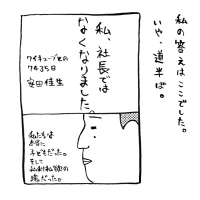 私の答えはここでした。
いや、道半ば。
私、社長では
なくなりました。
ワイキューブとの
7435日
安田佳生
私たちは
本当に
子どもだった。
そして